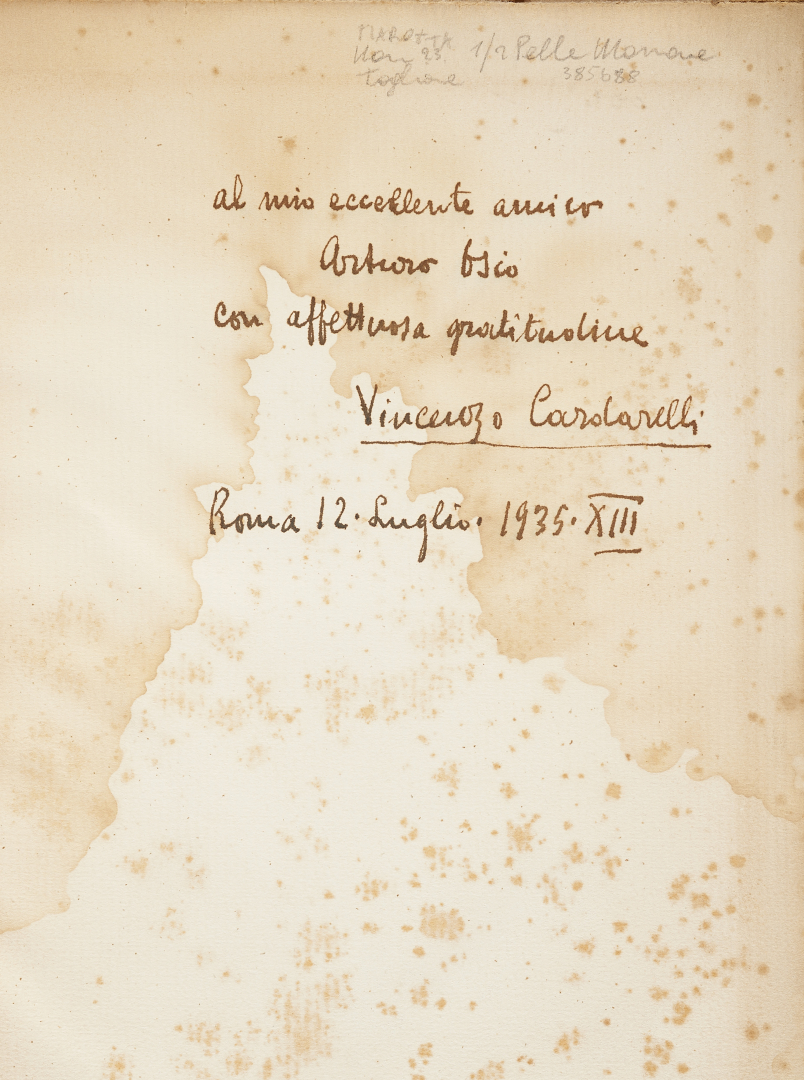 MAROTTA
1/2 Pelle Marrone
385688
al mio eccellente amico
Arturo Osio
con affettuosa gratitudine
Vincenzo Cardarelli
Roma 12. Luglio. 1935. XIII